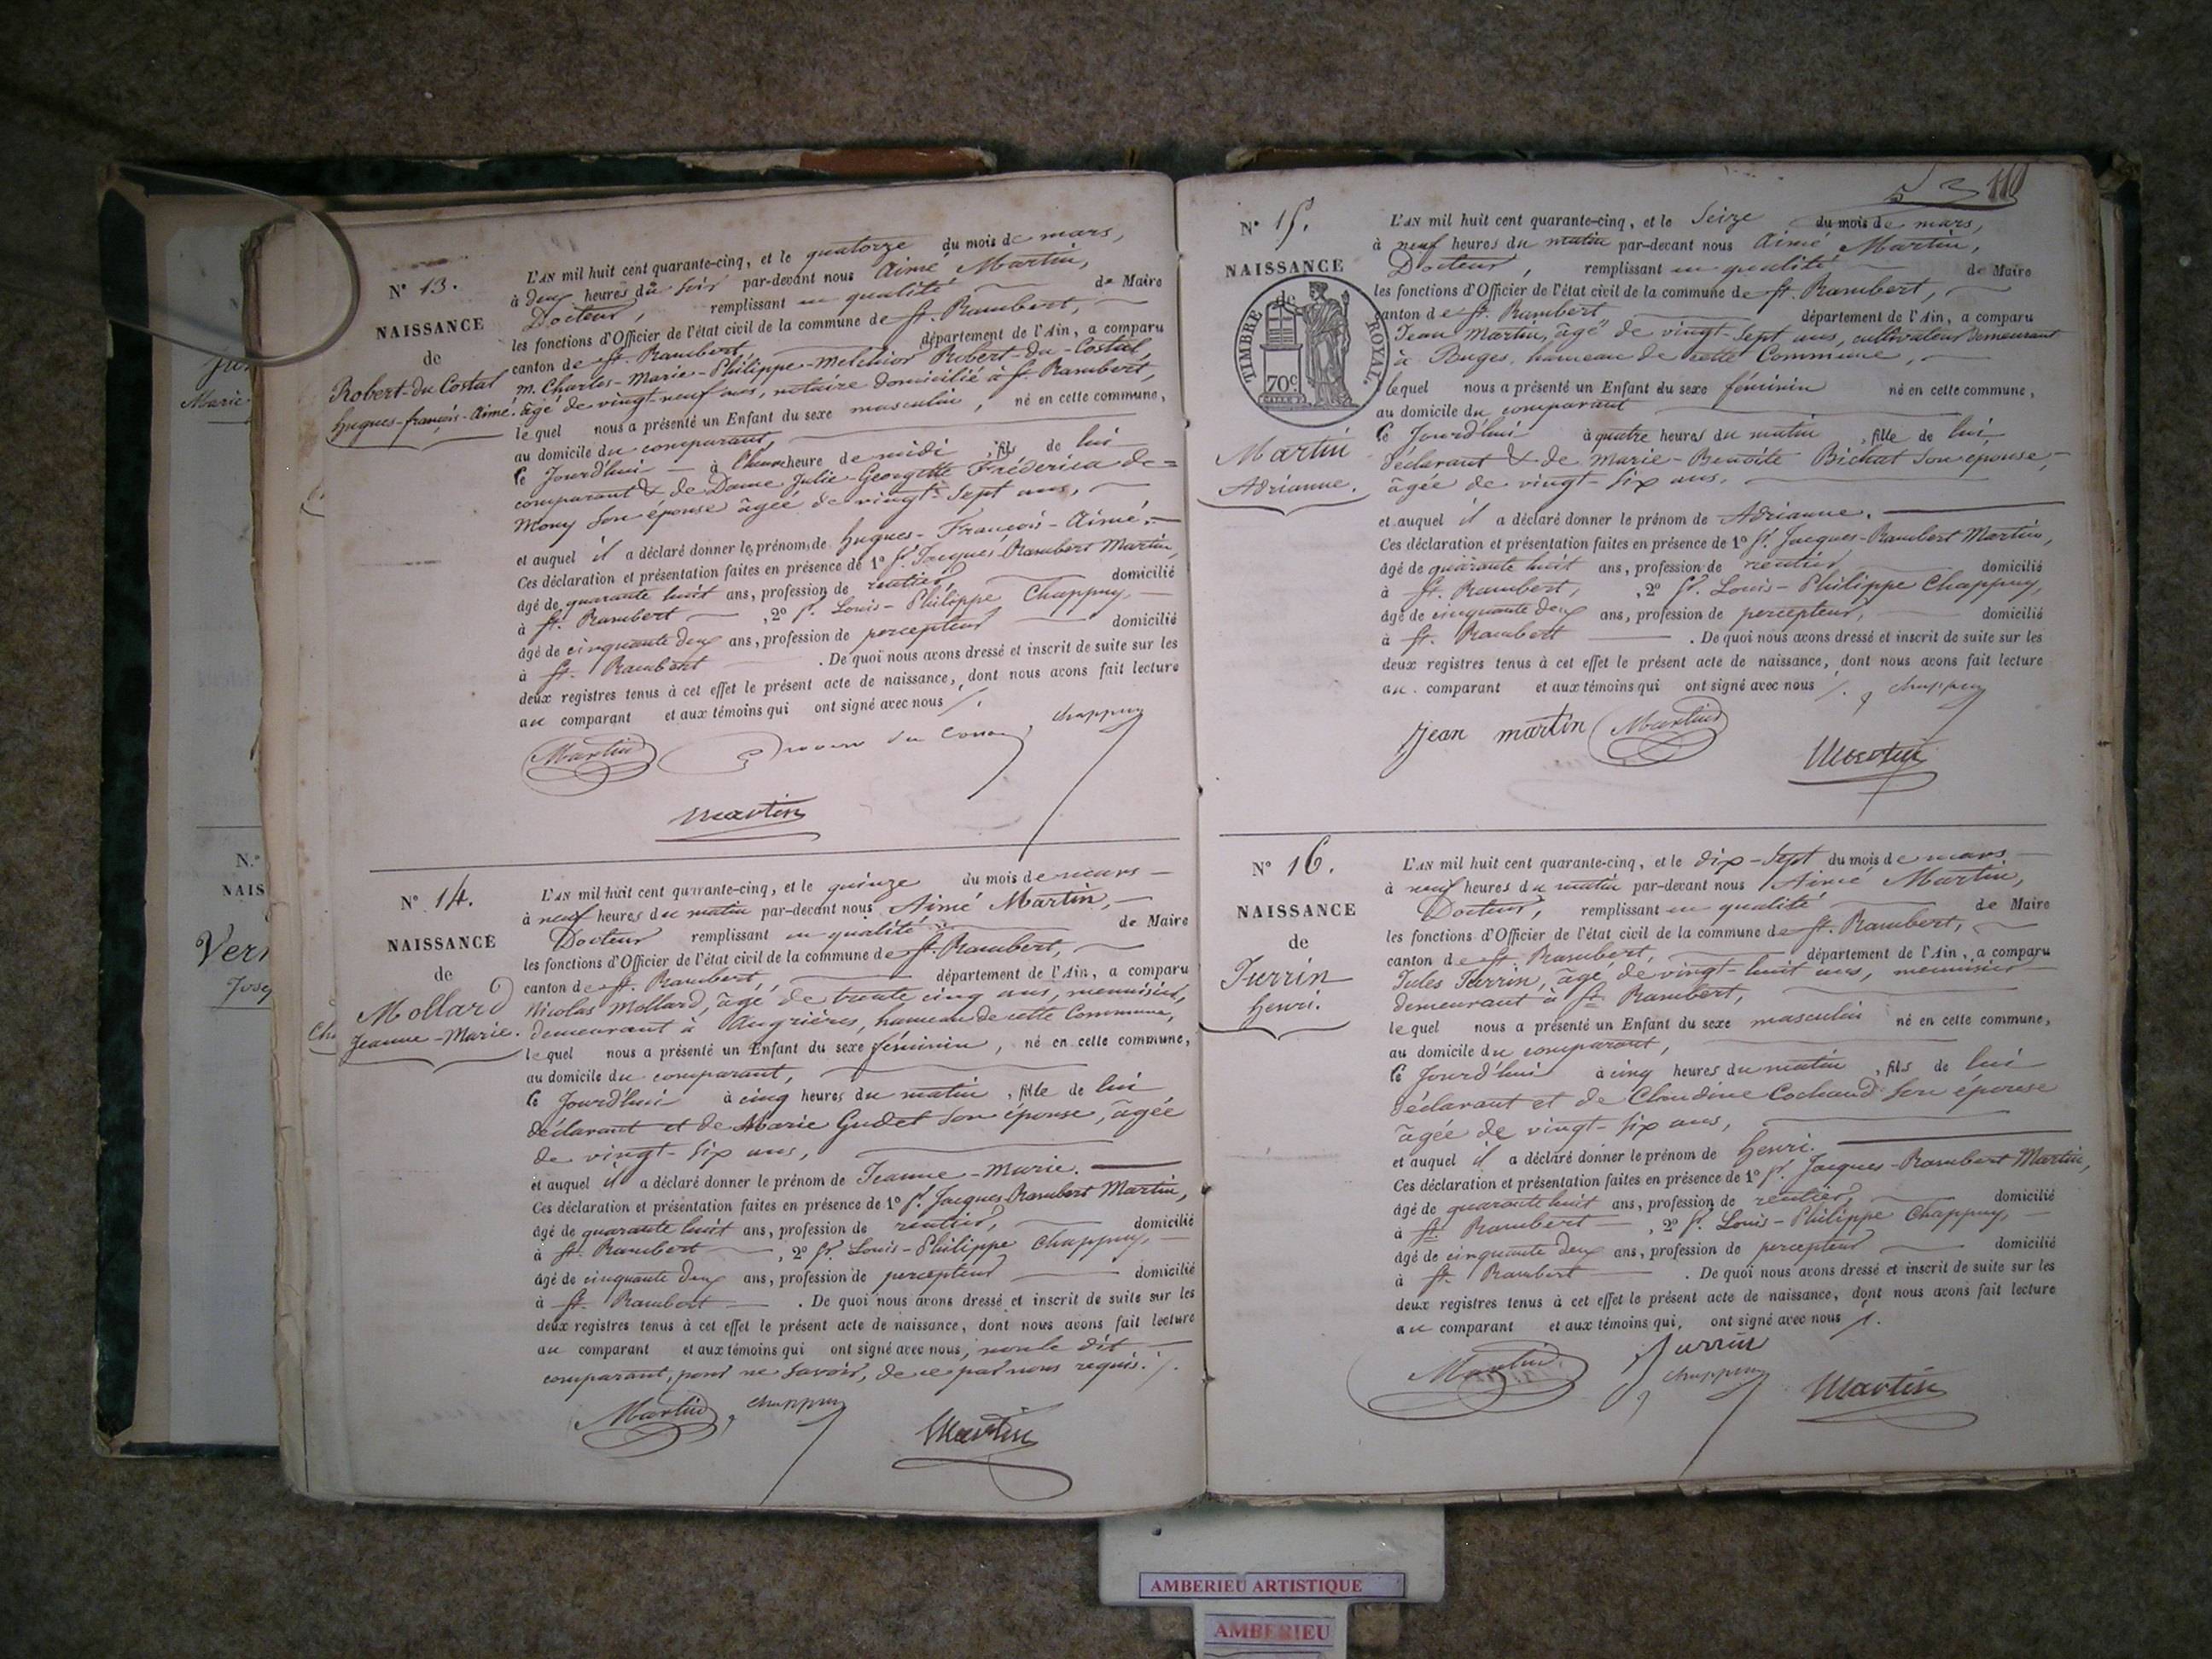 N° 13.
NAISSANCE
de
Robert-du Costal
hugues-françois-Aimé.
L'AN mil huit cent quarante-cinq, et le quatorze du mois de mars,
à deux heures du soir par-devant nous Aimé Martin,
Docteur, remplissant en qualité de Maire
les fonctions d'Officier de l'état civil de la commune de St. Rambert,
canton de St. Rambert, département de l'Ain, a comparu
M. Charles-Marie-Philippe-Melchior Robert-du-Costal,
âgé de vingt-neuf ans, notaire domicilié à St. Rambert,
lequel nous a présenté un Enfant du sexe masculin, né en cette commune,
au domicile du comparant,
ce Jourd'hui à heure de midi, fils de lui
comparant & de Dame Julie-Georgette Fréderica de=
Mony son épouse âgée de vingt-sept ans,
et auquel il a déclaré donner les prénoms de hugues-François-Aimé.
Ces déclaration et présentation faites en présence de 1° Sr. Jacques-Rambert Martin,
âgé de quarante huit ans, profession de rentier, domicilié
à St. Rambert, 2° Sr. Louis-Philippe Chappuy,
âgé de cinquante deux ans, profession de percepteur domicilié
à St. Rambert. De quoi nous avons dressé et inscrit de suite sur les
deux registres tenus à cet effet le présent acte de naissance, dont nous avons fait lecture
au comparant et aux témoins qui ont signé avec nous /.
Martin chappuy
Martin
N° 14.
NAISSANCE
de
Mollard
Jeanne-Marie.
L'AN mil huit cent quarante-cinq, et le quinze du mois de mars
à neuf heures du matin par-devant nous Aimé Martin,
Docteur remplissant en qualité de Maire
les fonctions d'Officier de l'état civil de la commune de St. Rambert,
canton de St. Rambert, département de l'Ain, a comparu
Nicolas Mollard, âgé de trente cinq ans, menuisier,
demeurant à Angrières, hameau de cette Commune,
lequel nous a présenté un Enfant du sexe féminin, né en cette commune,
au domicile du comparant,
ce Jourd'hui à cinq heures du matin, fille de lui
déclarant et de Marie Gudet son épouse, âgée
de vingt-six ans,
et auquel il a déclaré donner le prénom de Jeanne-Marie.
Ces déclaration et présentation faites en présence de 1° Sr. Jacques-Rambert Martin,
âgé de quarante huit ans, profession de rentier, domicilié
à St. Rambert, 2° Sr. Louis-Philippe Chappuy,
âgé de cinquante deux ans, profession de percepteur domicilié
à St. Rambert. De quoi nous avons dressé et inscrit de suite sur les
deux registres tenus à cet effet le présent acte de naissance, dont nous avons fait lecture
au comparant et aux témoins qui ont signé avec nous, non le dit
comparant, pour ne savoir, de ce par nous requis. /.
Martin chappuy
Martin
N° 15.
NAISSANCE
de
TIMBRE ROYAL.
70c.
Martin
Adrianne.
L'AN mil huit cent quarante-cinq, et le Seize du mois de mars,
à neuf heures du matin par-devant nous Aimé Martin,
Docteur, remplissant en qualité de Maire
les fonctions d'Officier de l'état civil de la commune de St. Rambert,
canton de St. Rambert département de l'Ain, a comparu
Jean Martin, âgé de vingt-sept ans, cultivateur demeurant
à Buges, hameau de cette Commune,
lequel nous a présenté un Enfant du sexe féminin né en cette commune,
au domicile du comparant
ce Jourd'hui à quatre heures du matin, fille de lui
déclarant & de Marie-Benoite Bichat son épouse,
âgée de vingt-six ans.
et auquel il a déclaré donner le prénom de Adrianne.
Ces déclaration et présentation faites en présence de 1° Sr. Jacques-Rambert Martin,
âgé de quarante huit ans, profession de rentier domicilié
à St. Rambert, 2° Sr. Louis-Philippe Chappuy,
âgé de cinquante deux ans, profession de percepteur, domicilié
à St. Rambert. De quoi nous avons dressé et inscrit de suite sur les
deux registres tenus à cet effet le présent acte de naissance, dont nous avons fait lecture
au comparant et aux témoins qui ont signé avec nous /. chappuy
jean martin Martin
Martin
N° 16.
NAISSANCE
de
Furrin
henri.
L'AN mil huit cent quarante-cinq, et le dix-sept du mois de mars
à neuf heures du matin par-devant nous Aimé Martin,
Docteur, remplissant en qualité de Maire
les fonctions d'Officier de l'état civil de la commune de St. Rambert,
canton de St. Rambert, département de l'Ain, a comparu
Jules Furrin, âgé de vingt-huit ans, menuisier
demeurant à St. Rambert,
lequel nous a présenté un Enfant du sexe masculin né en cette commune,
au domicile du comparant,
ce Jourd'hui à cinq heures du matin, fils de lui
déclarant et de Claudine Cochaud son épouse
âgée de vingt-six ans,
et auquel il a déclaré donner le prénom de henri.
Ces déclaration et présentation faites en présence de 1° Sr. Jacques-Rambert Martin,
âgé de quarante huit ans, profession de rentier, domicilié
à St. Rambert, 2° Sr. Louis-Philippe Chappuy,
âgé de cinquante deux ans, profession de percepteur domicilié
à St. Rambert. De quoi nous avons dressé et inscrit de suite sur les
deux registres tenus à cet effet le présent acte de naissance, dont nous avons fait lecture
au comparant et aux témoins qui, ont signé avec nous /.
Martin furrin
chappuy Martin
AMBERIEU ARTISTIQUE
AMBERIEU